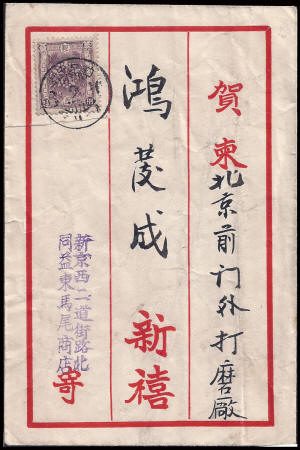 賀柬
北京前门外打磨廠
鴻茂成
新禧
新京西二道街路北
同益東馬尾商店
寄